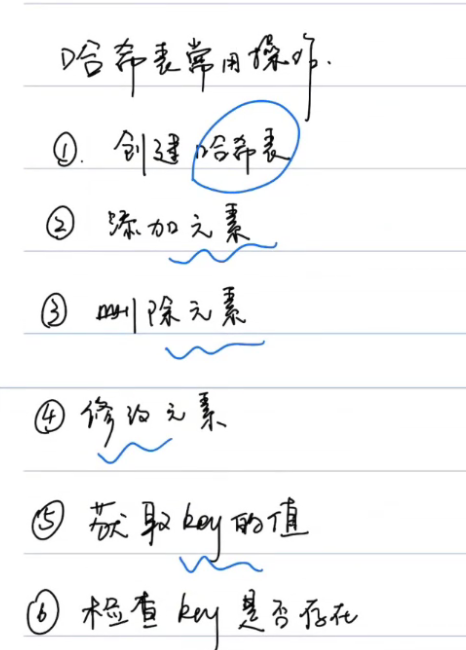 哈希表常用操作.
①. 创建哈希表
② 添加元素
③ 删除元素
④ 修改元素
⑤ 获取key的值
⑥ 检查key是否存在